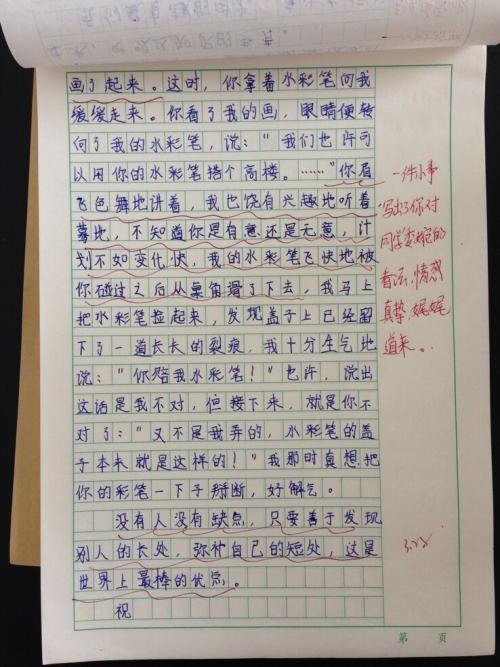 画了起来。这时，你拿着水彩笔向我
缓缓走来。你看了我的画，眼睛便转
向了我的水彩笔，说："我们也许可
以用你的水彩笔搭个高楼。……"你眉
飞色舞地讲着，我也饶有兴趣地听着
蓦地，不知道你是有意还是无意，计
划不如变化快，我的水彩笔飞快地被
你碰过之后从桌角滑了下去，我马上
把水彩笔捡起来，发现盖子上已经留
下了一道长长的裂痕，我十分生气地
说："你赔我水彩笔！"也许，说出
这话是我不对，但接下来，就是你不
对了："又不是我弄的，水彩笔的盖
子本来就是这样的！"我那时真想把
你的彩笔一下子掰断，好解气。
没有人没有缺点，只要善于发现
别人的长处，弥补自己的短处，这是
世界上最棒的优点。
祝
一件小事
写出了你对
同学委婉的
看法，情感
真挚，娓娓
道来。
第 页